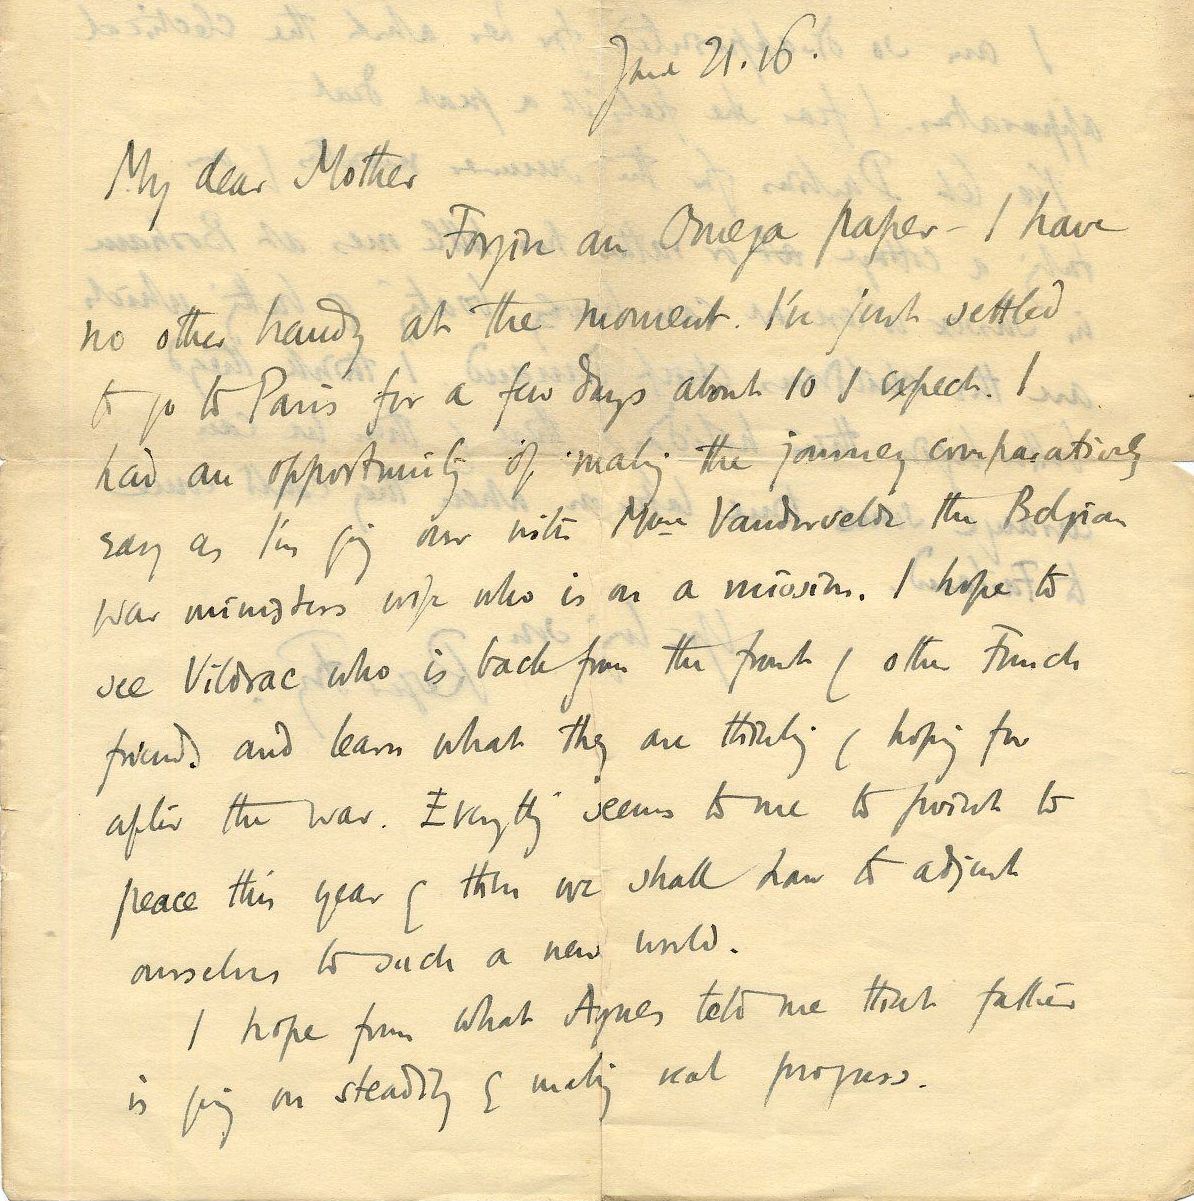 June 21. 16.
My dear Mother
Forgive an Omega paper – I have
no other handy at the moment. I've just settled
to go to Paris for a few days about 10 I expect. I
had an opportunity of making the journey comparatively
easy as I'm going over with Mme Vandervelde the Belgian
war ministers wife who is on a mission. I hope to
see Vildrac who is back from the front & other French
friends and learn what they are thinking & hoping for
after the war. Everything seems to me to point to
peace this year & then we shall have to adjust
ourselves to such a new world.
I hope from what Agnes told me that father
is going on steadily & making real progress.